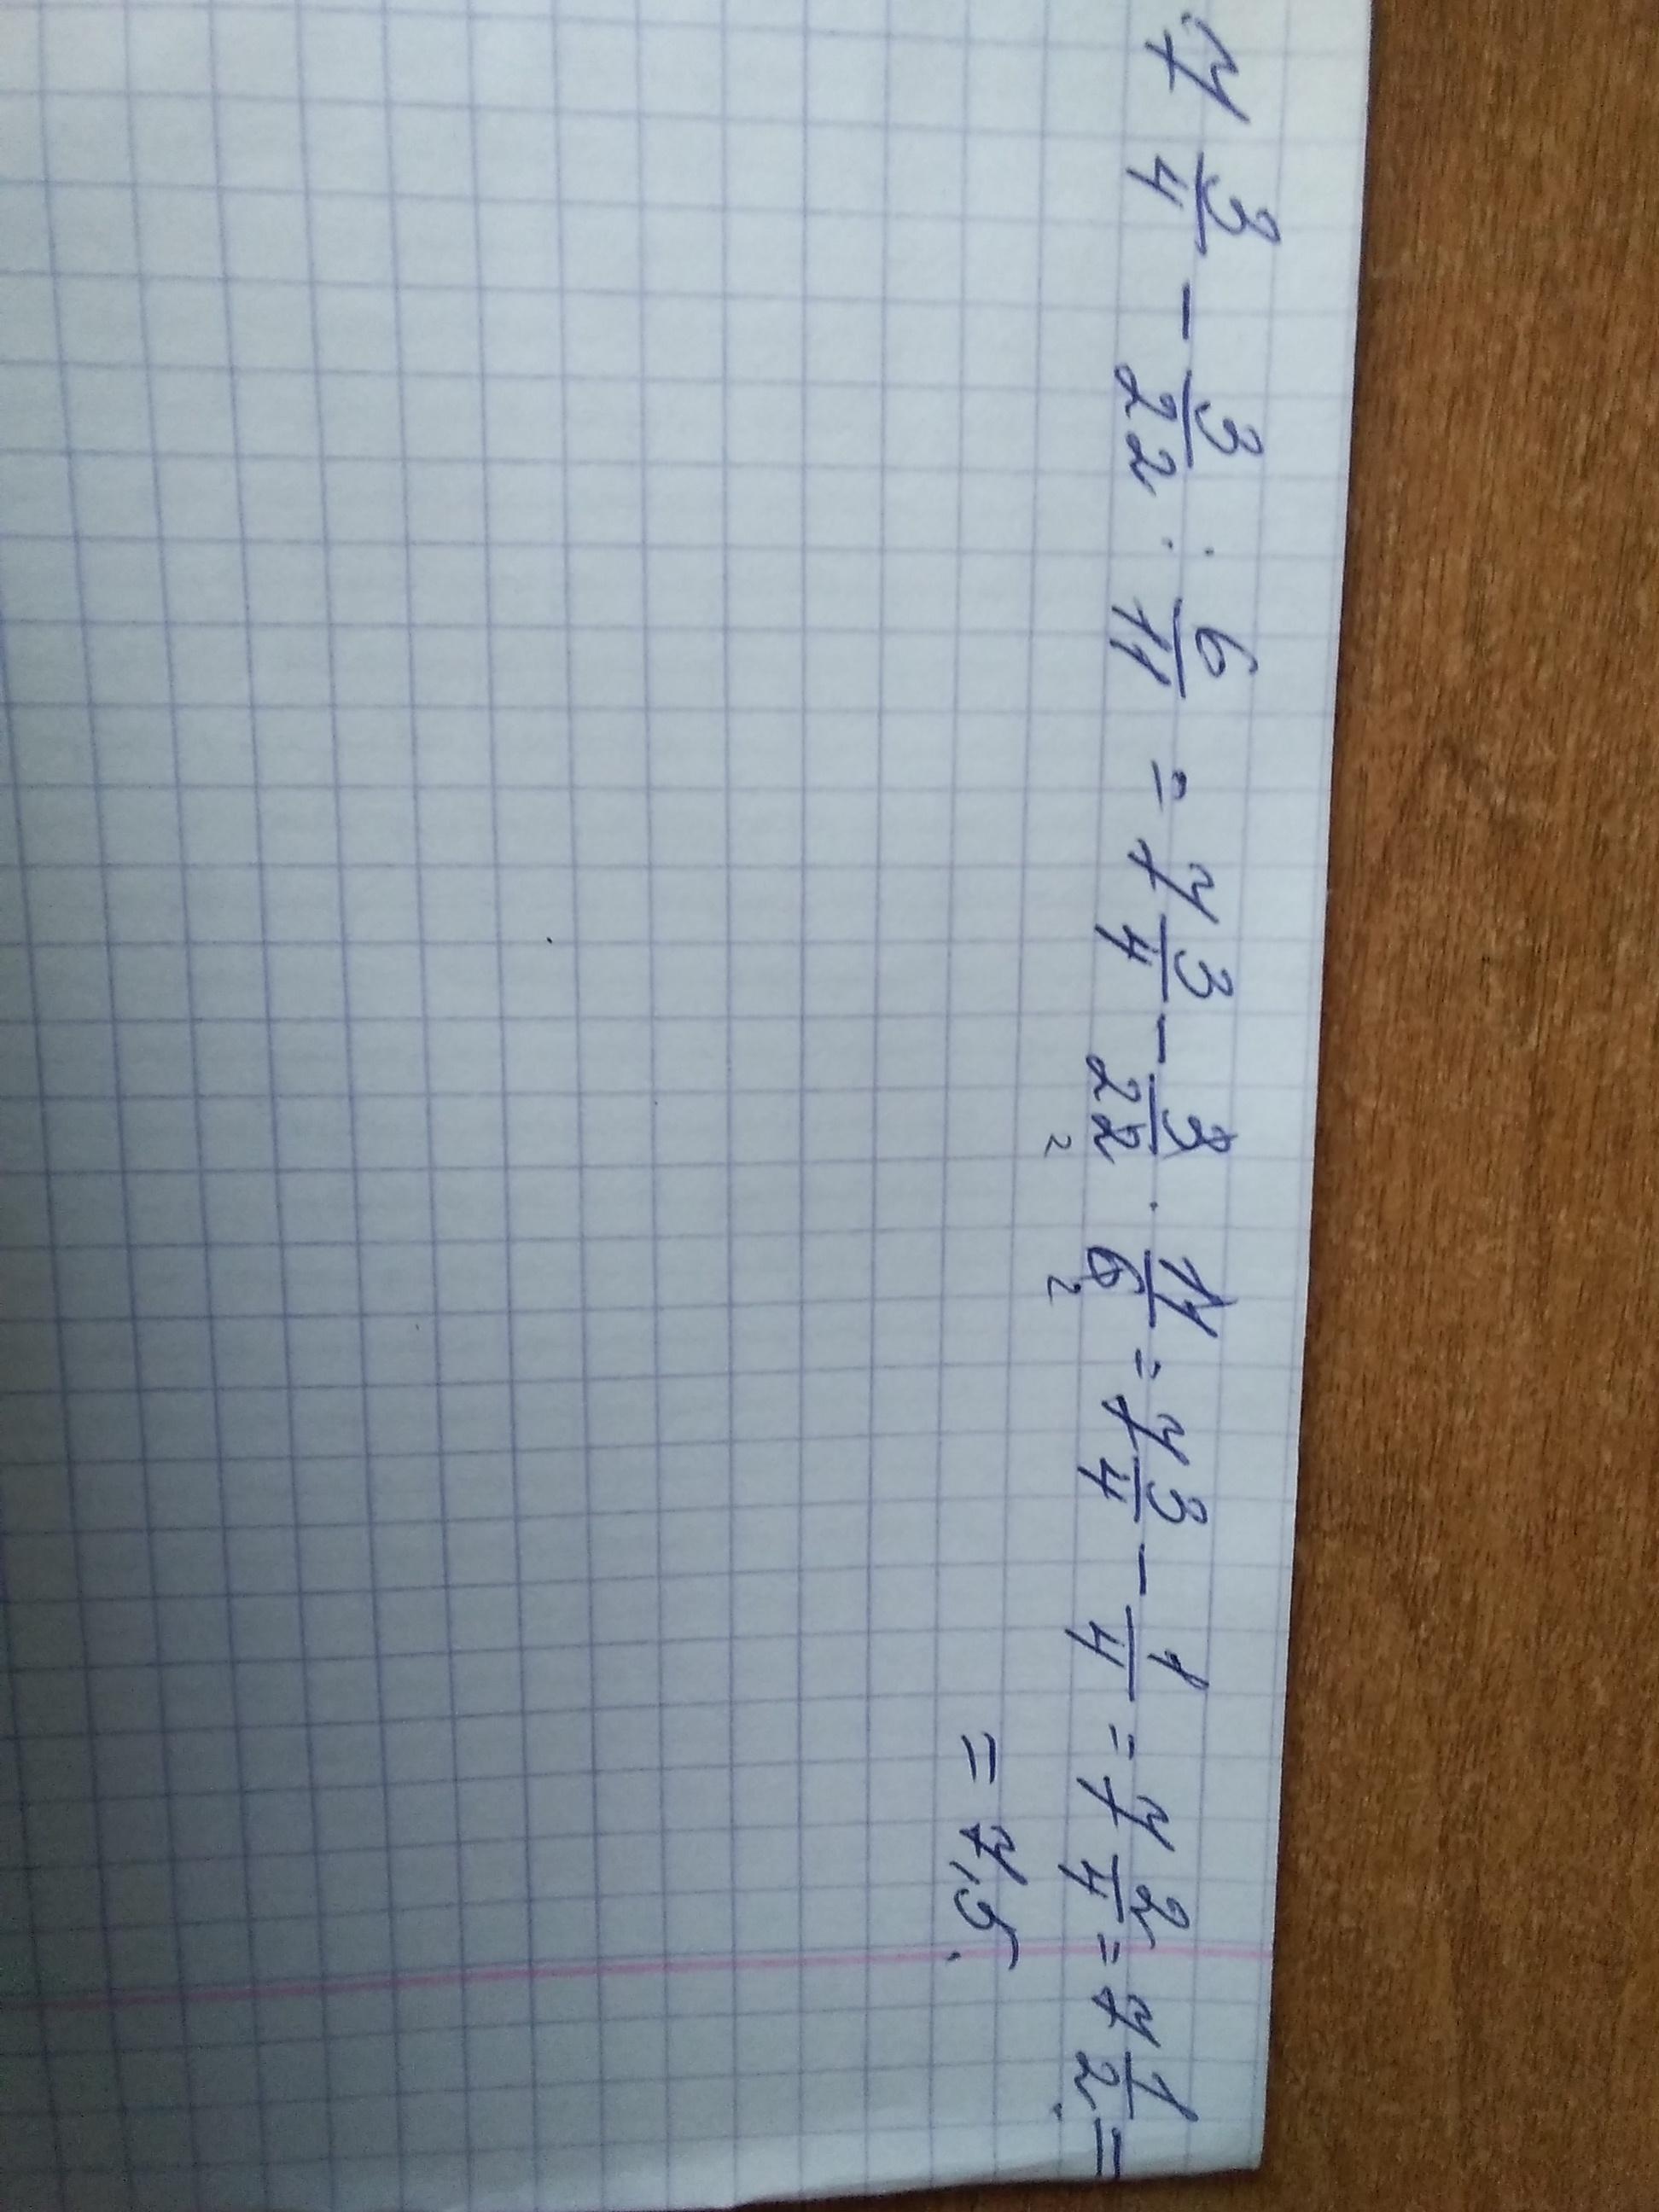 7 3/4 - 3/22 : 6/11 = 7 3/4 - 3/22 2 · 11/6 2 = 7 3/4 - 1/4 = 7 2/4 = 7 1/2 =
= 7,5.